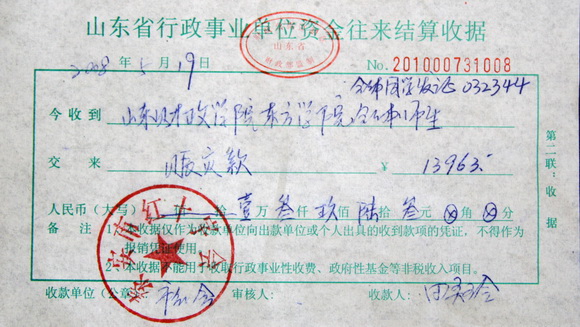 山东省行政事业单位资金往来结算收据
山东省
2008年5月19日
No.201000731008
032344
今收到 山东财政学院东方学院全体师生
交来 赈灾款 ¥ 13963.
人民币(大写) 拾壹万叁仟玖佰陆拾叁元⊗角⊗分
备 注 1.本收据仅作为收款单位向出款单位或个人出具的收到款项的凭证,不得作为
报销凭证使用。
2.本收据不能用于收取行政事业性收费、政府性基金等非税收入项目。
收款单位(公章): 审核人: 收款人:
第二联:收据
泰安市红十字会